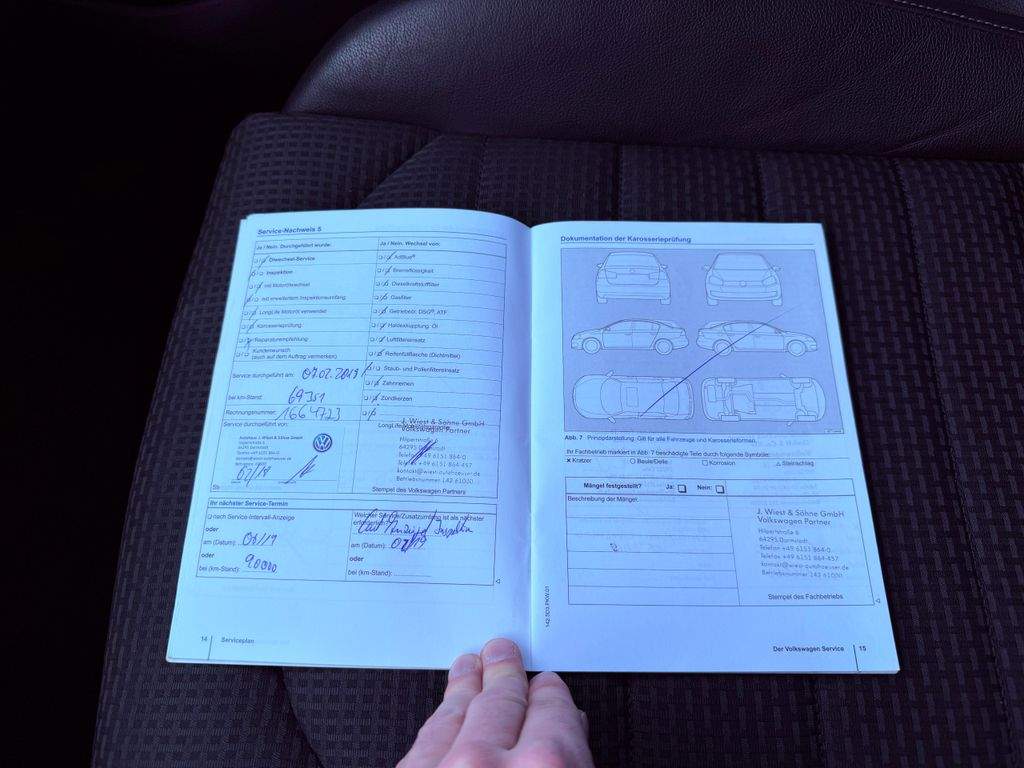 Service-Nachweis 5
Ja / Nein. Durchgeführt wurde:
Ja / Nein. Wechsel von:
Ölwechsel-Service
Inspektion
mit Motorölwechsel
mit erweitertem Inspektionsumfang
LongLife Motoröl verwendet
Karosserieprüfung
Reparaturempfehlung
Kundenwunsch
(auch auf dem Auftrag vermerken)
AdBlue®
Bremsflüssigkeit
Dieselkraftstofffilter
Gasfilter
Getriebeöl: DSG®, ATF
Haldexkupplung: Öl
Luftfiltereinsatz
Reifenfüllflasche (Dichtmittel)
Staub- und Pollenfiltereinsatz
Zahnriemen
Zündkerzen
Service durchgeführt am: 07.02.2019
bei km-Stand: 69351
Rechnungsnummer: 1664723
Service durchgeführt von:
Autohaus J. Wiest & Söhne GmbH
02/19
J. Wiest & Söhne GmbH
Volkswagen Partner
Hilpertstraße 6
64295 Darmstadt
Telefon +49 6151 864-0
Telefax +49 6151 864-457
kontakt@wiest-autohaeuser.de
Betriebsnummer 142 61000
Stempel des Volkswagen Partners
Ihr nächster Service-Termin
nach Service-Intervall-Anzeige
oder
am (Datum):
oder
bei (km-Stand): 90000
Welcher Service/Zusatzumfang ist als nächster
erforderlich?
am (Datum):
oder
bei (km-Stand):
14 Serviceplan
Dokumentation der Karosserieprüfung
Abb. 7 Prinzipdarstellung: Gilt für alle Fahrzeuge und Karosserieformen.
Ihr Fachbetrieb markiert in Abb. 7 beschädigte Teile durch folgende Symbole:
× Kratzer ○ Beule/Delle □ Korrosion △ Steinschlag
Mängel festgestellt? Ja: Nein:
Beschreibung der Mängel:
J. Wiest & Söhne GmbH
Volkswagen Partner
Hilpertstraße 6
64295 Darmstadt
Telefon +49 6151 864-0
Telefax +49 6151 864-457
kontakt@wiest-autohaeuser.de
Betriebsnummer 142 61000
Stempel des Fachbetriebs
142.5D3.PKW.01
Der Volkswagen Service 15